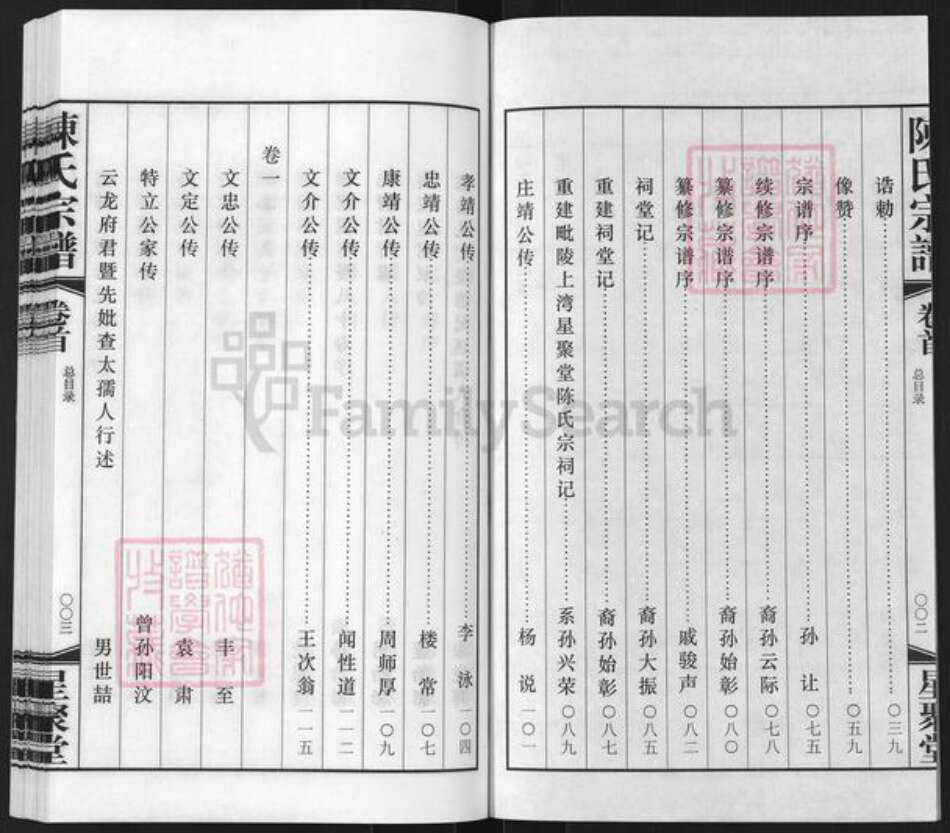 陈氏宗谱
卷首
总目录
〇〇二
星聚堂
诰勅〇三九
像赞〇五九
宗谱序孙让〇七五
续修宗谱序裔孙云际〇七八
纂修宗谱序裔孙始彰〇八〇
纂修宗谱序戚骏声〇八二
祠堂记裔孙大振〇八五
重建祠堂记裔孙始彰〇八七
重建毗陵上湾星聚堂陈氏宗祠记系孙兴荣〇八九
庄靖公传杨说一〇一
孝靖公传李泳一〇四
忠靖公传楼常一〇七
康靖公传周师厚一〇九
文介公传闻性道一一二
文介公传王次翁一一五
卷一
文忠公传丰至
文定公传袁肃
特立公家传曾孙阳汶
云龙府君暨先妣查太孺人行述男世喆
陳氏宗譜
卷首
总目录
〇〇三
星聚堂
FamilySearch